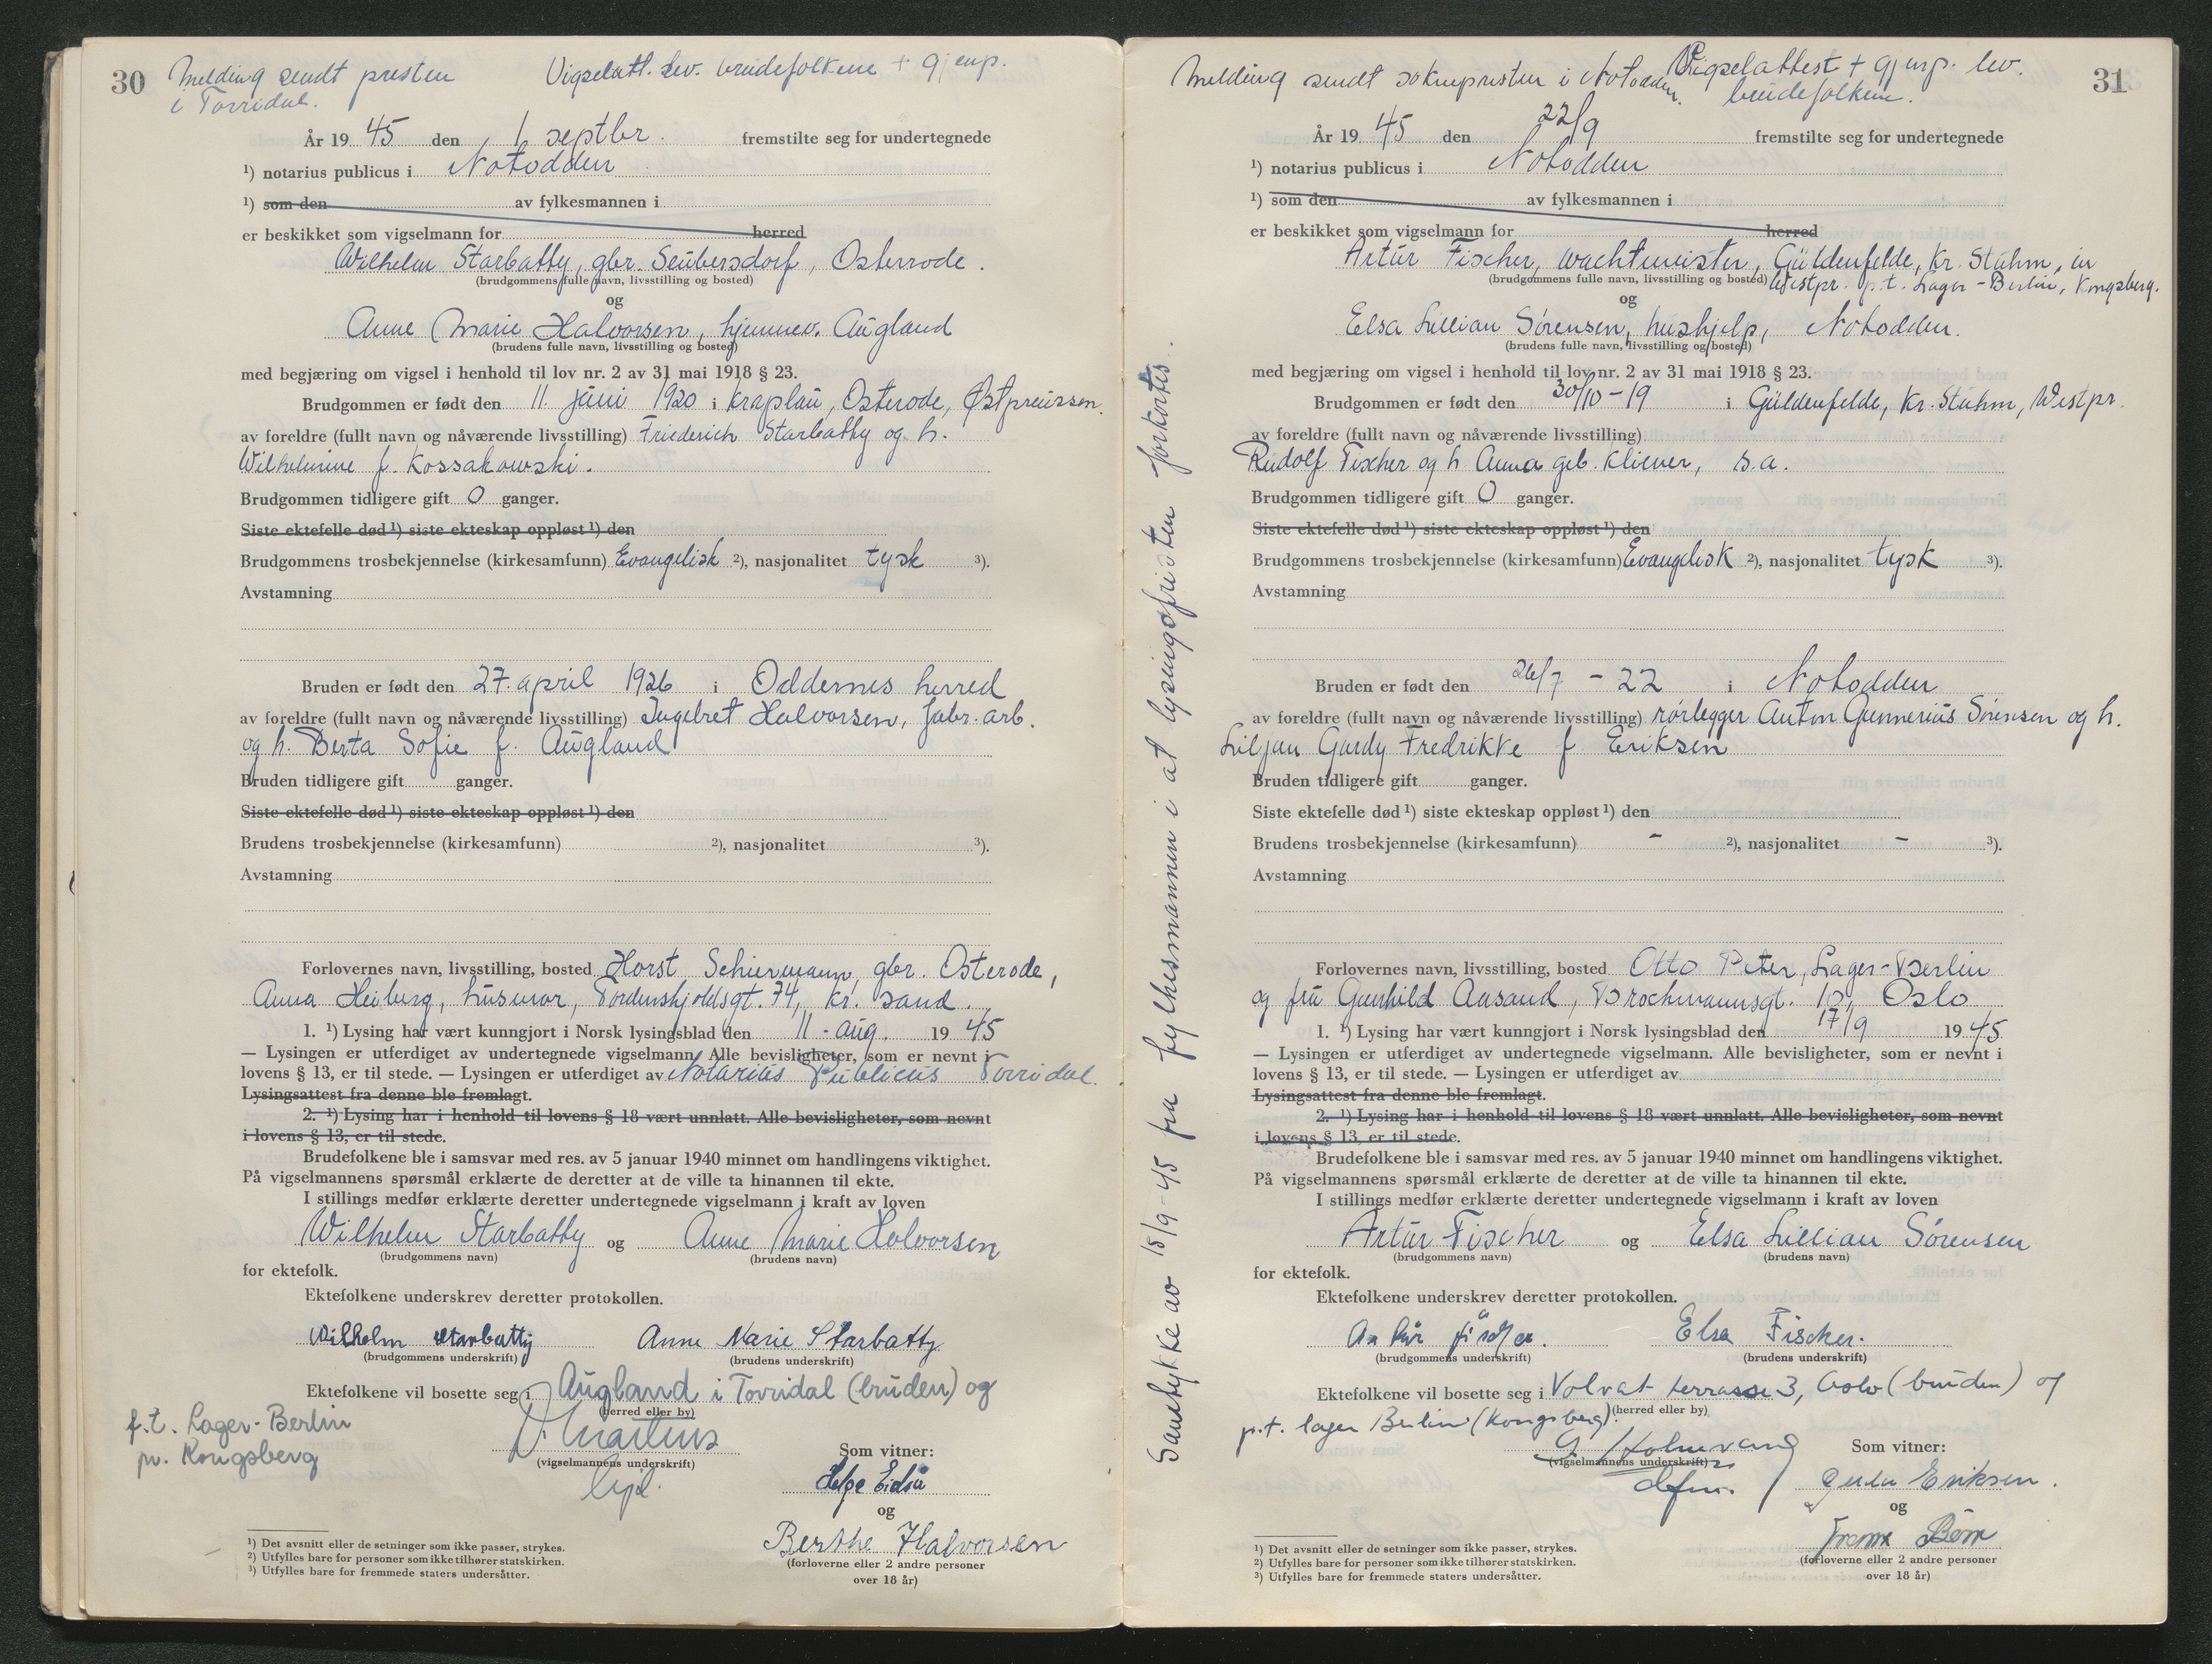 30
Melding sendt presten
i Tovridal.
Vigselatt. lev. brudefolkene + gjenp.
År 19 45 den 1 septbr. fremstilte seg for undertegnede
¹) notarius publicus i Notodden
¹) som den av fylkesmannen i
er beskikket som vigselmann for herred
Wilhelm Starbatty, gbr. Seubersdorf, Osterrode.
(brudgommens fulle navn, livsstilling og bosted)
og
Anne Marie Halvorsen, hjemmev. Augland
(brudens fulle navn, livsstilling og bosted)
med begjæring om vigsel i henhold til lov nr. 2 av 31 mai 1918 § 23.
Brudgommen er født den 11. juni 1920 i Kraplau, Osterode, Østpreussen.
av foreldre (fullt navn og nåværende livsstilling) Friederich Starbatty og h.
Wilhelmine f. Kossakowski.
Brudgommen tidligere gift 0 ganger.
Siste ektefelle død ¹) siste ekteskap oppløst ¹) den
Brudgommens trosbekjennelse (kirkesamfunn) Evangelisk ²), nasjonalitet tysk ³).
Avstamning
Bruden er født den 27. april 1926 i Oddernes herred
av foreldre (fullt navn og nåværende livsstilling) Ingebret Halvorsen, fabr. arb.
og h. Berta Sofie f. Augland
Bruden tidligere gift ganger.
Siste ektefelle død ¹) siste ekteskap oppløst ¹) den
Brudens trosbekjennelse (kirkesamfunn) ²), nasjonalitet ³).
Avstamning
Forlovernes navn, livsstilling, bosted Horst Schiermann, gbr. Osterode,
Anna Heiberg, husmor, Tordenskjoldsgt. 74, Kr. sand.
1. ¹) Lysing har vært kunngjort i Norsk lysingsblad den 11. aug. 19 45
— Lysingen er utferdiget av undertegnede vigselmann. Alle bevisligheter, som er nevnt i
lovens § 13, er til stede. — Lysingen er utferdiget av Notarius Publicus Tovridal.
Lysingsattest fra denne ble fremlagt.
2. ¹) Lysing har i henhold til lovens § 18 vært unnlatt. Alle bevisligheter, som nevnt
i lovens § 13, er til stede.
Brudefolkene ble i samsvar med res. av 5 januar 1940 minnet om handlingens viktighet.
På vigselmannens spørsmål erklærte de deretter at de ville ta hinannen til ekte.
I stillings medfør erklærte deretter undertegnede vigselmann i kraft av loven
Wilhelm Starbatty og Anne Marie Halvorsen
(brudgommens navn) (brudens navn)
for ektefolk.
Ektefolkene underskrev deretter protokollen.
Wilhelm Starbatty Anne Marie Starbatty
(brudgommens underskrift) (brudens underskrift)
Ektefolkene vil bosette seg i Augland i Tovridal (bruden) og
(herred eller by)
f.t. Lager-Berlin
pr. Kongsberg
(vigselmannens underskrift)
Som vitner:
Helge Eidså
og
Berthe Halvorsen
(forloverne eller 2 andre personer
over 18 år)
¹) Det avsnitt eller de setninger som ikke passer, strykes.
²) Utfylles bare for personer som ikke tilhører statskirken.
³) Utfylles bare for fremmede staters undersåtter.
Samtykke av 18/9-45 fra fylkesmannen i at lysingsfristen forkortes.
31
Melding sendt soknepresten i Notodden.
Vigselattest + gjenp. lev.
brudefolkene.
År 19 45 den 22/9 fremstilte seg for undertegnede
¹) notarius publicus i Notodden
¹) som den av fylkesmannen i
er beskikket som vigselmann for herred
Artur Fischer, wachtmeister, Güldenfelde, Kr. Stuhm, in
(brudgommens fulle navn, livsstilling og bosted) Westpr. p.t. Lager-Berlin, Kongsberg.
og
Elsa Lillian Sørensen, hushjelp, Notodden.
(brudens fulle navn, livsstilling og bosted)
med begjæring om vigsel i henhold til lov nr. 2 av 31 mai 1918 § 23.
Brudgommen er født den 30/10-19 i Güldenfelde, Kr. Stuhm, Westpr.
av foreldre (fullt navn og nåværende livsstilling)
Rudolf Fischer og h. Anna geb. Kliewer, s.a.
Brudgommen tidligere gift 0 ganger.
Siste ektefelle død ¹) siste ekteskap oppløst ¹) den
Brudgommens trosbekjennelse (kirkesamfunn) Evangelisk ²), nasjonalitet tysk ³).
Avstamning
Bruden er født den 26/7 - 22 i Notodden
av foreldre (fullt navn og nåværende livsstilling) rørlegger Anton Gunnerius Sørensen og h.
Liljan Gurdy Fredrikke f Eriksen
Bruden tidligere gift ganger.
Siste ektefelle død ¹) siste ekteskap oppløst ¹) den
Brudens trosbekjennelse (kirkesamfunn) - ²), nasjonalitet - ³).
Avstamning
Forlovernes navn, livsstilling, bosted Otto Peter, Lager-Berlin
og fru Gunhild Aasand, Brochmannsgt. 10, Oslo
1. ¹) Lysing har vært kunngjort i Norsk lysingsblad den 17/9 19 45
— Lysingen er utferdiget av undertegnede vigselmann. Alle bevisligheter, som er nevnt i
lovens § 13, er til stede. — Lysingen er utferdiget av
Lysingsattest fra denne ble fremlagt.
2. ¹) Lysing har i henhold til lovens § 18 vært unnlatt. Alle bevisligheter, som nevnt
i lovens § 13, er til stede.
Brudefolkene ble i samsvar med res. av 5 januar 1940 minnet om handlingens viktighet.
På vigselmannens spørsmål erklærte de deretter at de ville ta hinannen til ekte.
I stillings medfør erklærte deretter undertegnede vigselmann i kraft av loven
Artur Fischer og Elsa Lillian Sørensen
(brudgommens navn) (brudens navn)
for ektefolk.
Ektefolkene underskrev deretter protokollen.
Artur Fischer. Elsa Fischer.
(brudgommens underskrift) (brudens underskrift)
Ektefolkene vil bosette seg i Volvat terrasse 3, Oslo (bruden) og
(herred eller by)
p.t. lager Berlin (Kongsberg).
G. Holmvang
(vigselmannens underskrift)
dfm.
Som vitner:
Gerda Eriksen.
og
(forloverne eller 2 andre personer
over 18 år)
¹) Det avsnitt eller de setninger som ikke passer, strykes.
²) Utfylles bare for personer som ikke tilhører statskirken.
³) Utfylles bare for fremmede staters undersåtter.